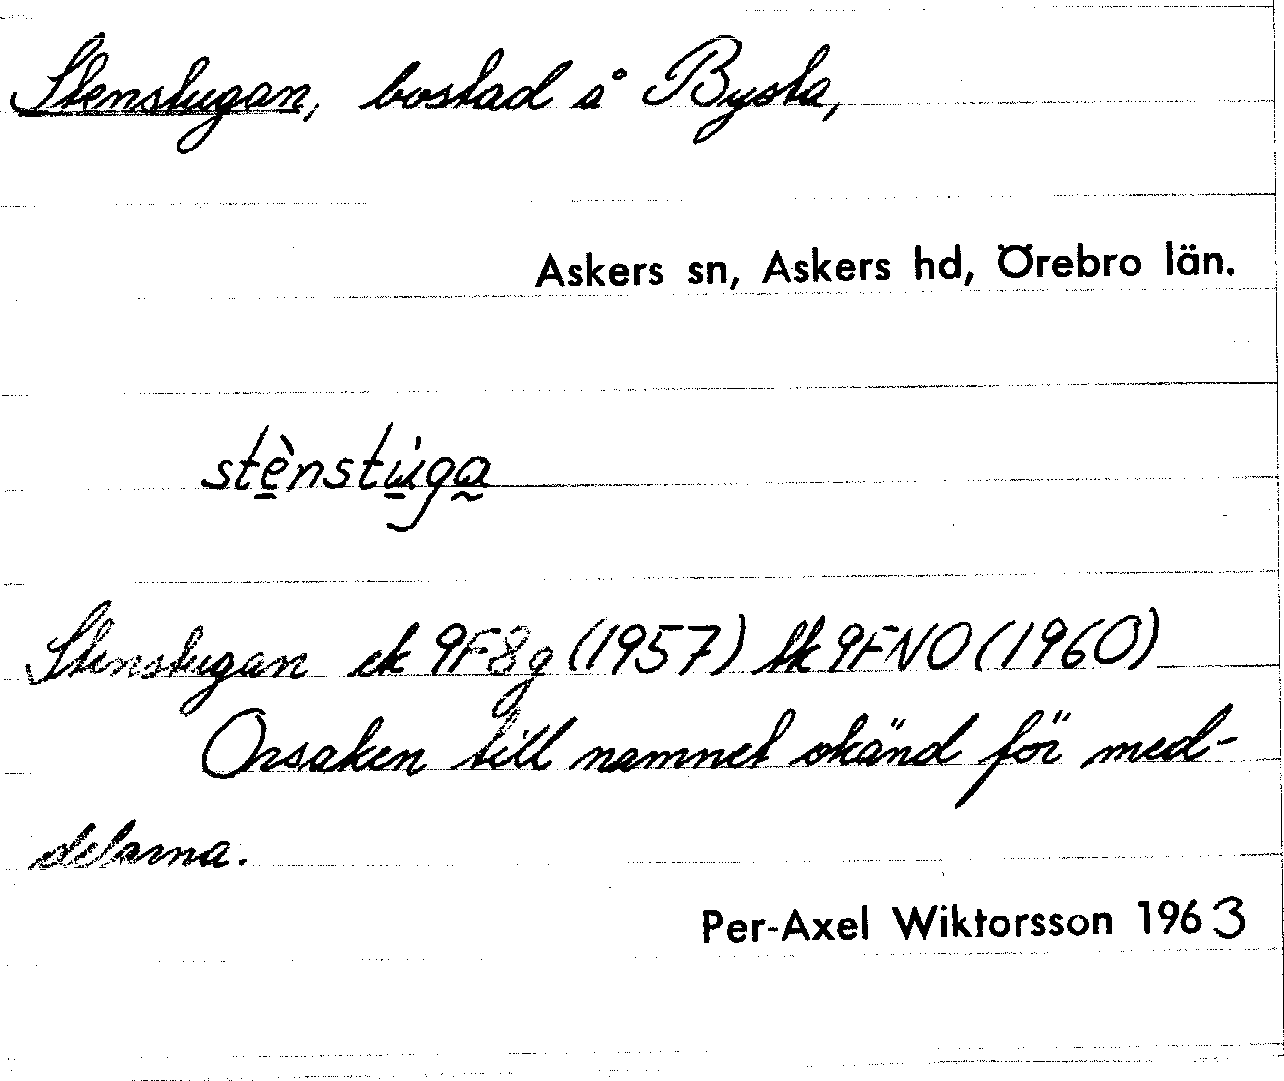 Stenstugan, bostad å Bysta,
Askers sn, Askers hd, Örebro län.
stènstùga
Stenstugan ek 9F8g (1957) tk 9FNO (1960)
Orsaken till namnet okänd för med-
delarna.
Per-Axel Wiktorsson 1963